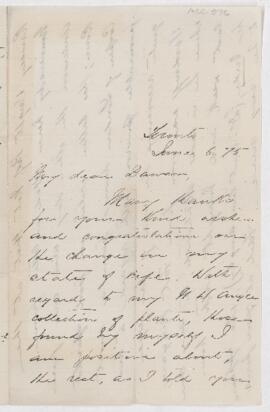 Toronto
June 6, 75
My dear Dawson,
Many thanks
for your kind
and congratulations on
the change in my
state of life. With
regard to my
collection of plants, those
found by myself I
am positive about,
the rest, as I told you,